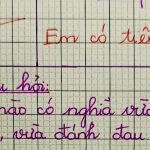 Em có
hỏi:
nào có nghĩa vừa
, vừa đánh đau